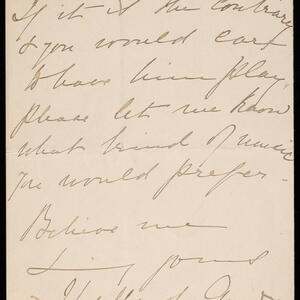 If it is the contrary
& you would care
to have him play,
please let me know
what kind of music
you would prefer.
Believe me
yours